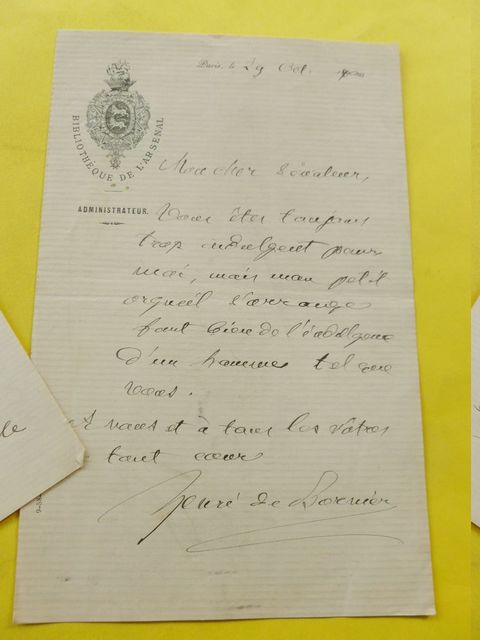 Paris, le 29 Oct. 1900
BIBLIOTHÈQUE DE L'ARSENAL
ADMINISTRATEUR.
Mon cher Sénateur,
Vous êtes toujours
trop indulgent pour
moi, mais mon petit
orgueil s'arrange
fort bien de l'indulgence
d'un homme tel que
vous.
A vous et à tous les vôtres
tout cœur
Henri de Bornier